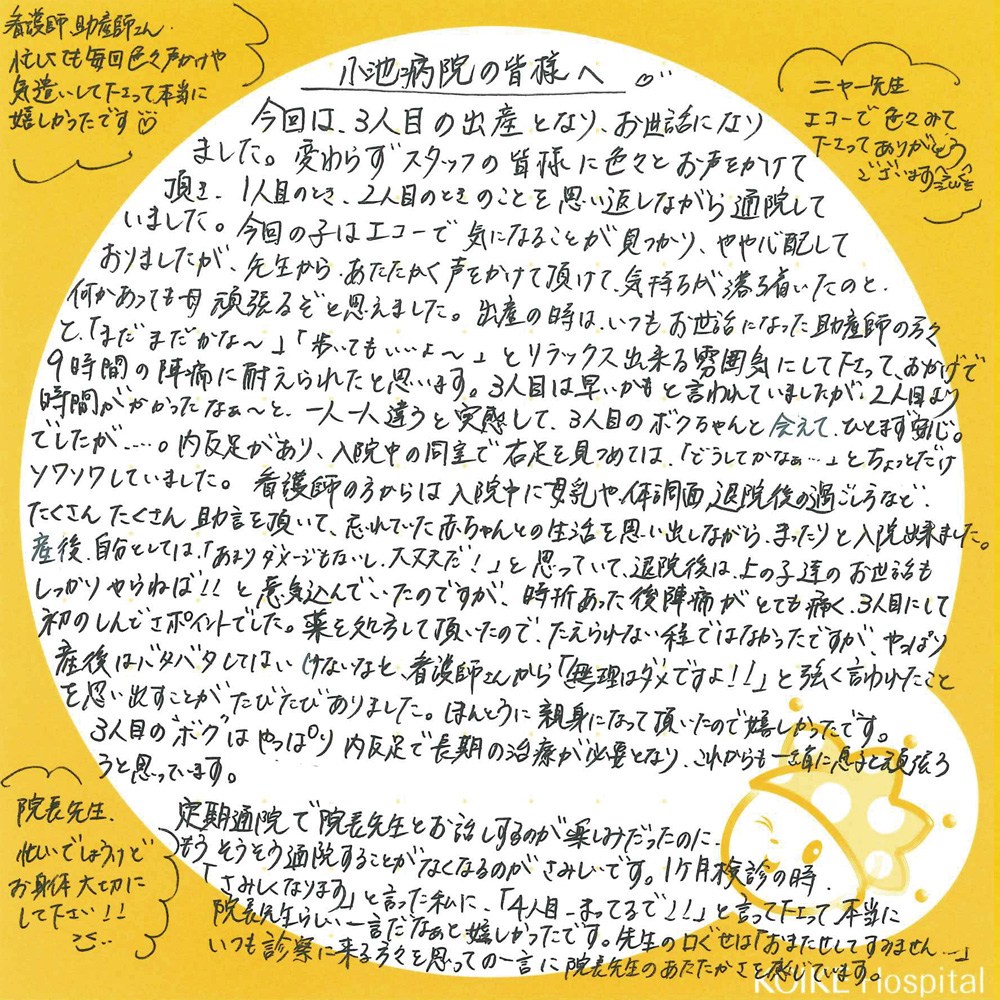 看護師、助産師さん
忙しくても毎回色々声かけや
気遣いして下さって本当に
嬉しかったです
ニャー先生
エコーで色々みて
下さってありがとう
ございます
小池病院の皆様へ
今回は、3人目の出産となり、お世話になり
ました。変わらずスタッフの皆様に色々とお声をかけて
頂き、1人目のとき、2人目のときのことを思い返しながら通院して
いました。今回の子はエコーで気になることが見つかり、やや心配して
おりましたが、先生からあたたかく声をかけて頂けて、気持ちが落ち着いたのと、
何かあっても母頑張るぞと思えました。出産の時は、いつもお世話になった助産師の方々
と、「まだまだかな〜」「歩いてもいいよ〜」とリラックス出来る雰囲気にして下さって、おかげで
9時間の陣痛に耐えられたと思います。3人目は早いかもと言われていましたが、2人目より
時間がかかったなぁ〜と、一人一人違うと実感して、3人目のボクちゃんと会えて、ひとまず安心。
でしたが…。内反足があり、入院中の同室で右足を見つめては、「どうしてかなぁ…」とちょっとだけ
ソワソワしていました。看護師の方からは入院中に母乳や体調面、退院後の過ごし方など、
たくさんたくさん助言を頂いて、忘れていた赤ちゃんとの生活を思い出しながら、まったりと入院出来ました。
産後、自分としては、「あまりダメージもないし、大丈夫だ!」と思っていて、退院後は、上の子達のお世話も
しっかりやらねば!!と意気込んでいたのですが、時折あった後陣痛がとても痛く、3人目にして
初のしんどさポイントでした。薬を処方して頂いたので、たえられない程ではなかったですが、やっぱり
産後はバタバタしてはいけないなと、看護師さんから「無理はダメですよ!!」と強く言われたこと
を思い出すことがたびたびありました。ほんとうに親身になって頂いたので嬉しかったです。
3人目の"ボク"はやっぱり内反足で長期の治療が必要となり、これからも一緒に息子と頑張ろ
うと思っています。
院長先生、
忙しいでしょうけど
お身体大切に
して下さい!!
定期通院で院長先生とお話しするのが楽しみだったのに、
もうそうそう通院することがなくなるのがさみしいです。1ヶ月検診の時、
「さみしくなります」と言った私に、「4人目まってるで!!」と言って下さって本当に
院長先生らしい一言だなぁと嬉しかったです。先生の口ぐせは「おまたせしてすみません…」
いつも診察に来る方々を思っての一言に院長先生のあたたかさを感じています。
KOIKE Hospital